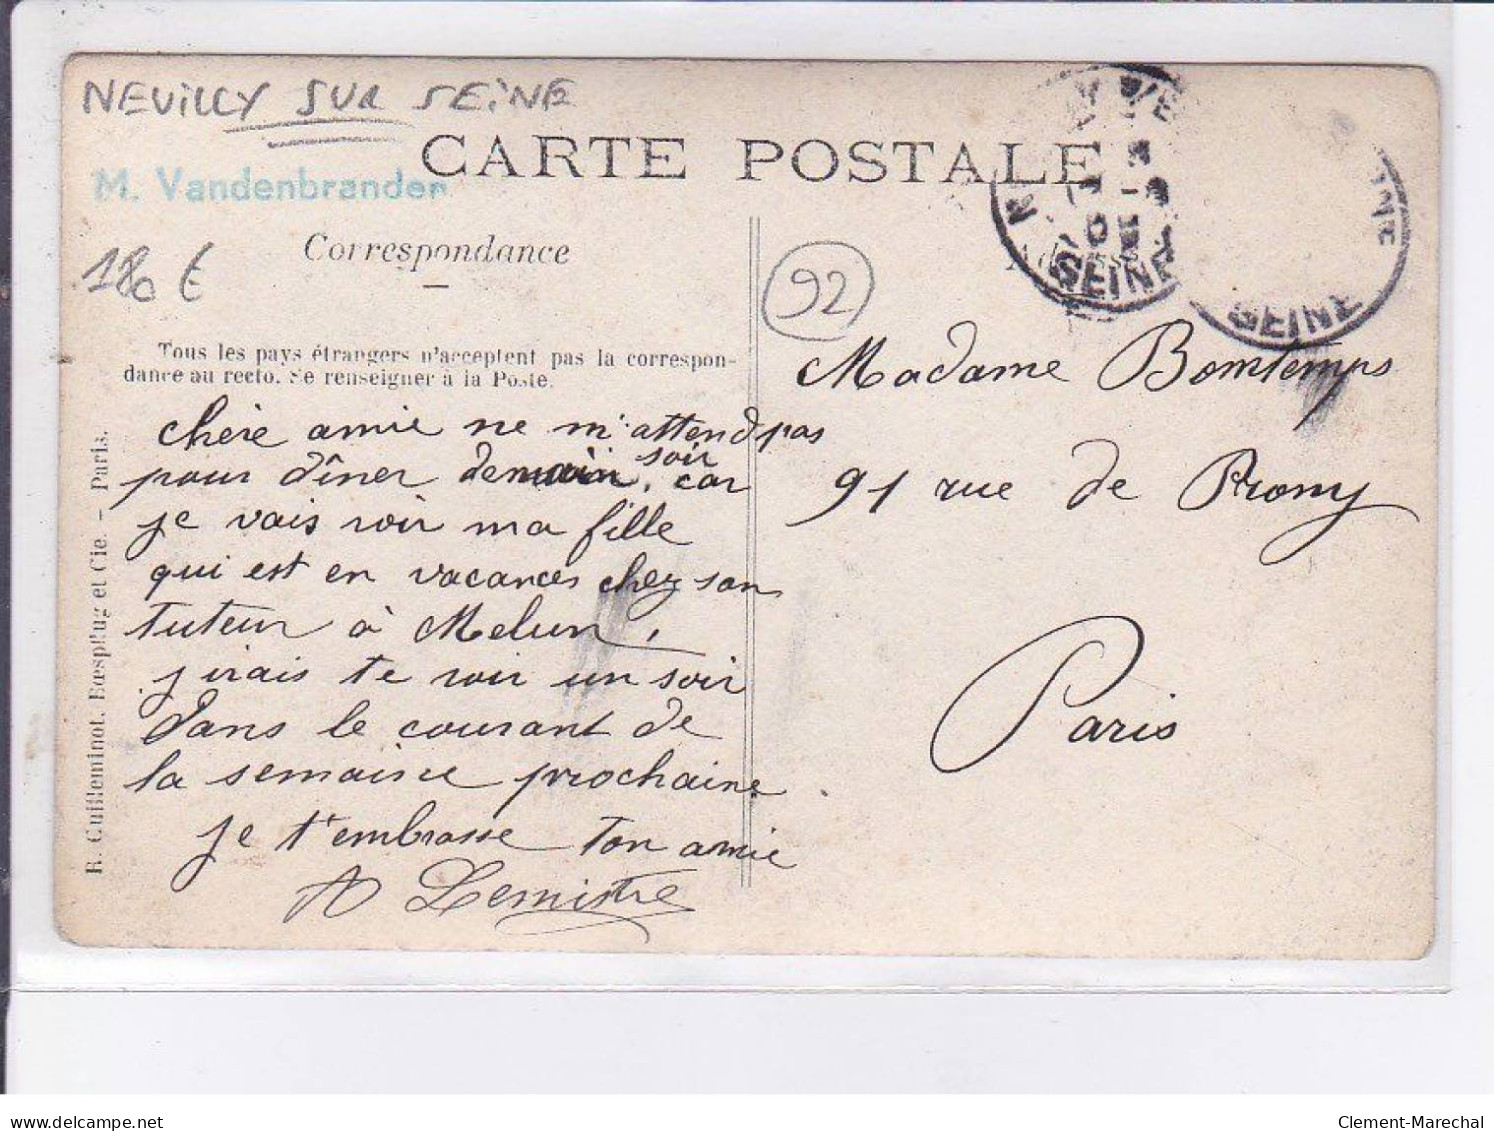 NEUILLY SUR SEINE
CARTE POSTALE
M. Vandenbranden
Correspondance
180 €
92
SEINE
SEINE
Tous les pays étrangers n'acceptent pas la correspon-
dance au recto. Se renseigner à la Poste.
chère amie ne m'attend pas
pour dîner demain soir, car
je vais voir ma fille
qui est en vacances chez son
tuteur à Melun,
j'irais te voir un soir
dans le courant de
la semaine prochaine
je t'embrasse ton amie
A Lemistre
Madame Bomtemps
91 rue de Prony
Paris
R. Guilleminot, Bœspflug et Cie. - Paris.
delcampe.net
Clement-Marechal